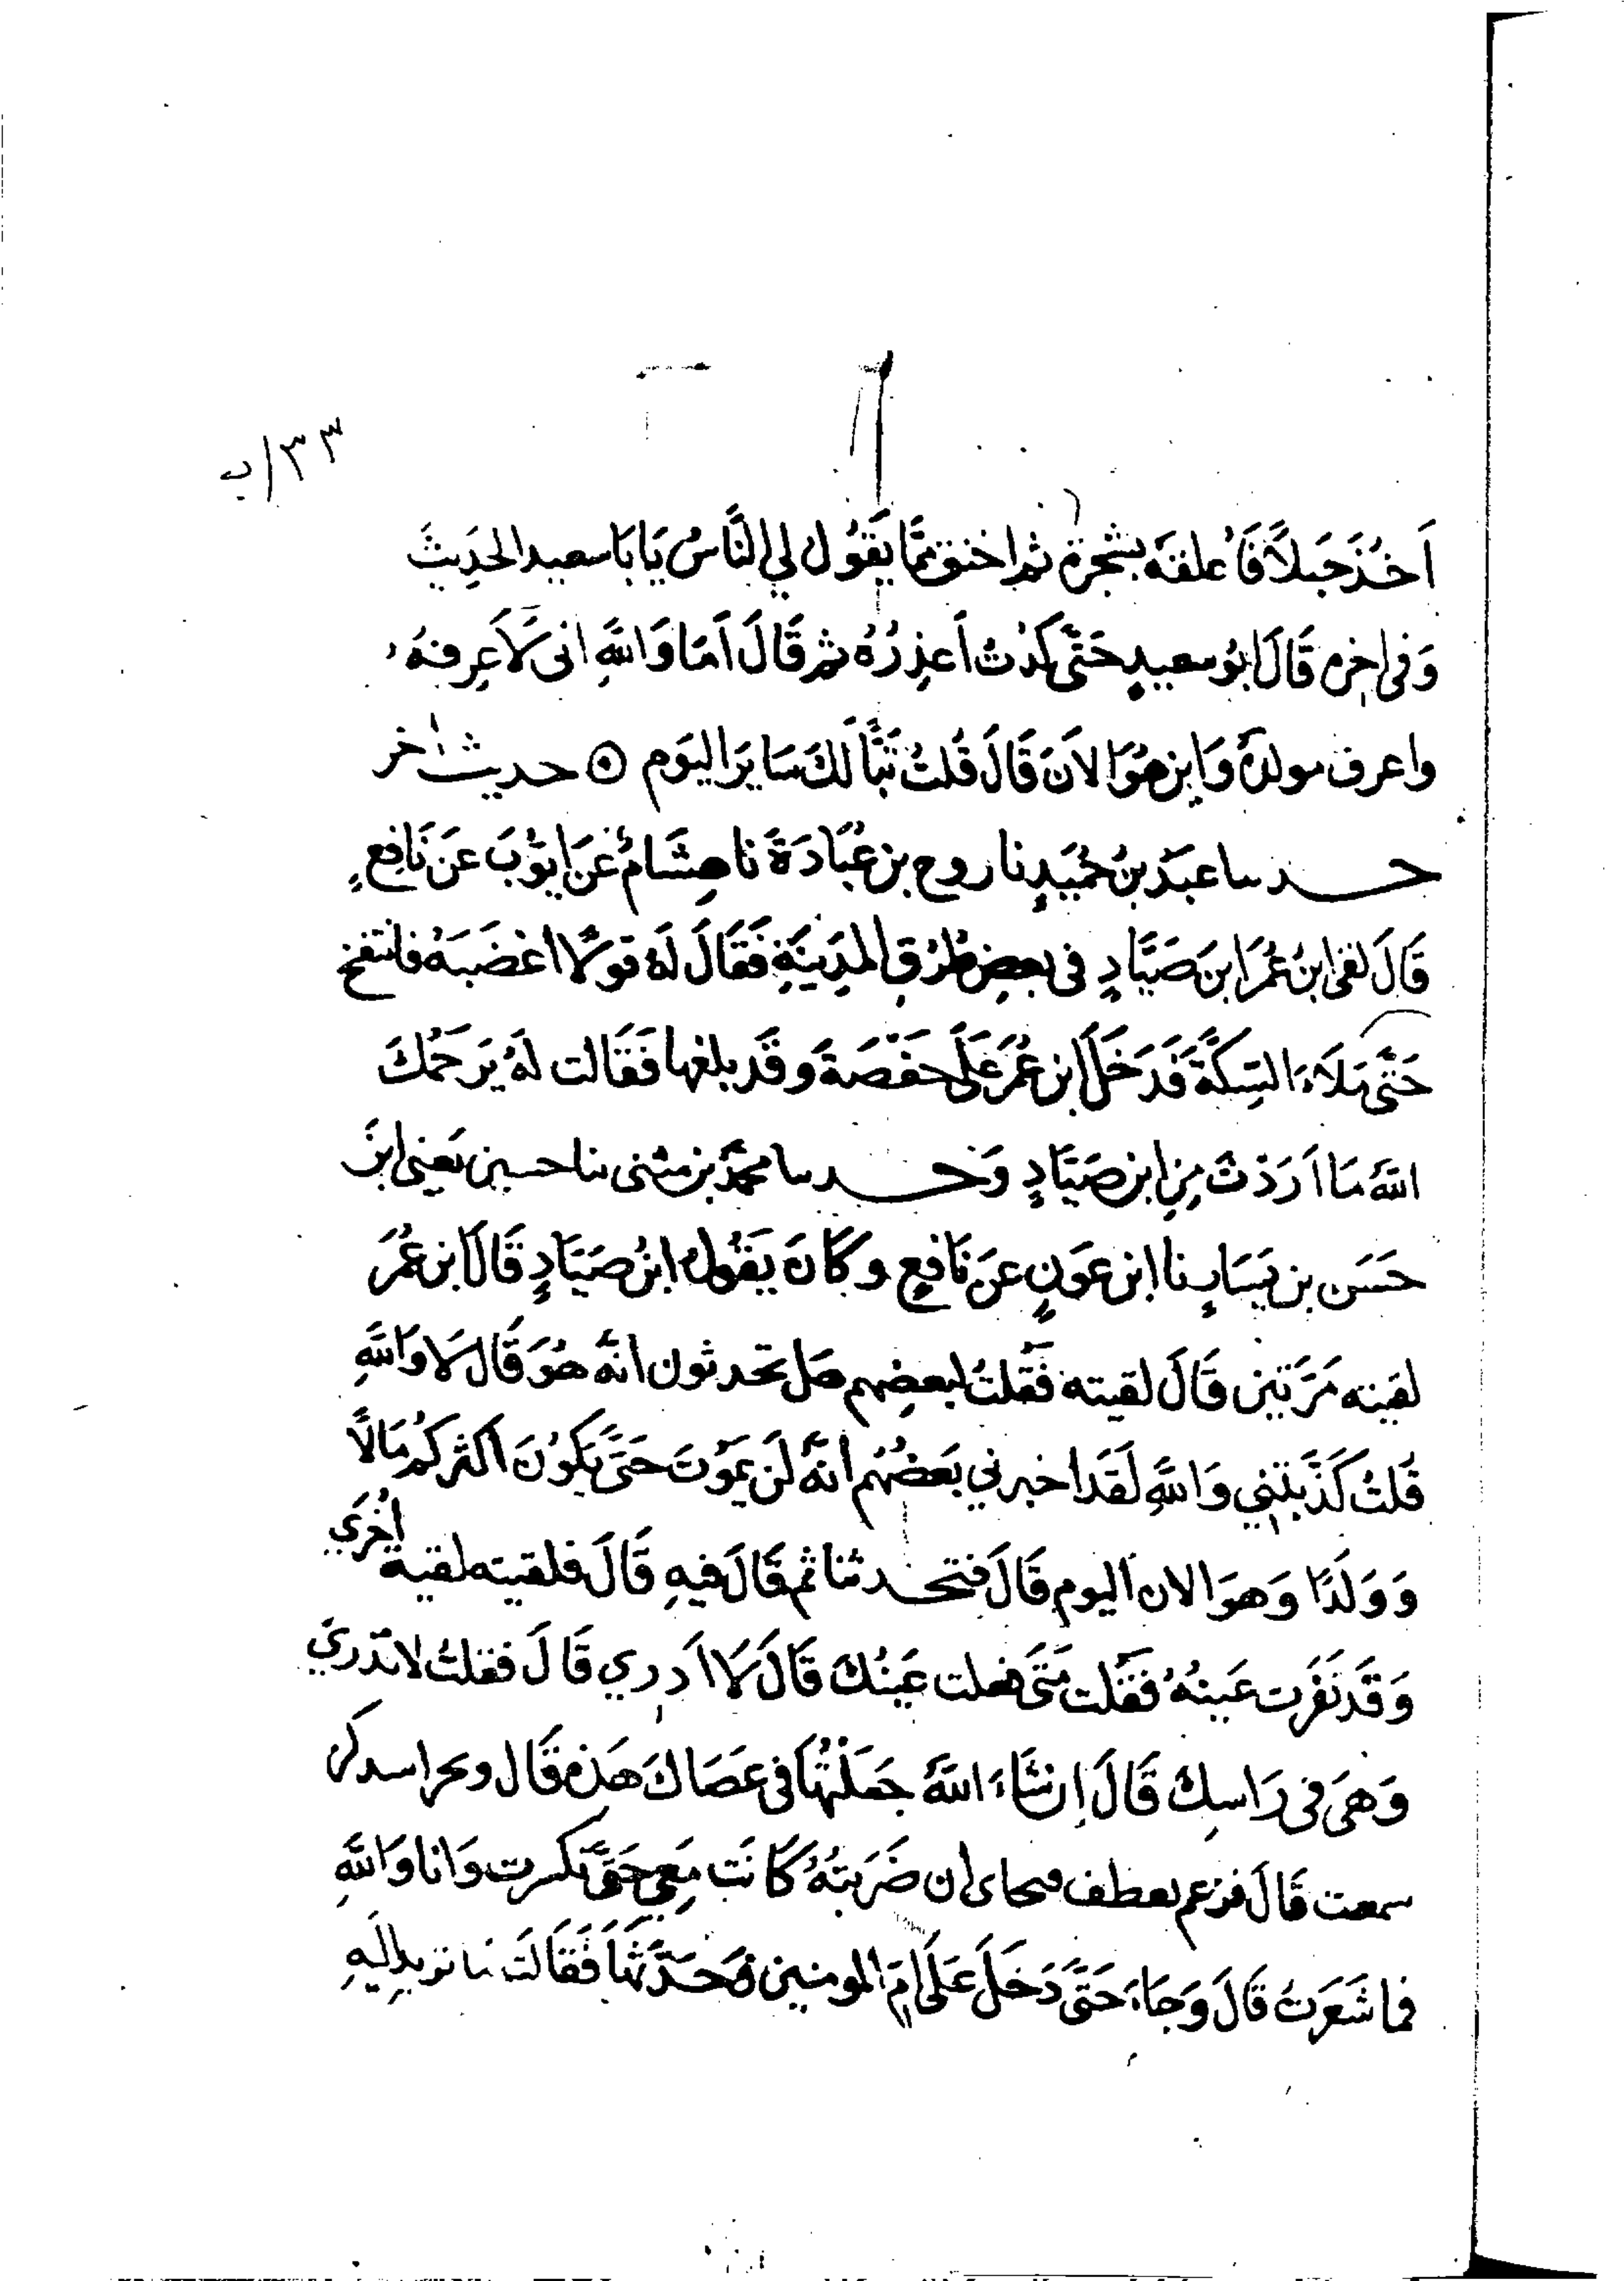 ٣٣/ب
اَخُذَ حَبلاً فَأُعلقهُ بشجرة ثم اختنق مما يَقُول لي النَّاسُ يَابَا سعيد الحَدِيثَ
وَفى اخره قَالَ ابُو سعيدٍ حَتَّى كدْتُ اَعذِرُهُ ثم قَالَ اَمَا وَاللَّهِ انى لَاَعرِفهُ
واعرف مولدهُ وَاين هُوَ الاَنَ قَالَ قُلتُ تَبًّا لَكَ سَايرَ اليَوم ۞ حديث اخر
حدثنا عبدُ بنُ حُمَيدٍ نا روح بن عُبَادَةَ نا هِشَامُ عَن ايُّوبَ عَن نَافِعٍ
قَالَ لقى ابنُ عُمَرَ ابنَ صَيَّادٍ فى بعضِ طُرُقِ المدِينَةِ فَقَالَ لَهُ قولًا اَغضَبَهُ فانتفخ
حَتَّى مَلاَءَ السِّكَّةَ فَدَخَلَ ابن عُمَرَ عَلَى حَفصَةَ وَقَد بلغها فَقَالت لهُ يَرحَمُكَ
اللهُ مَا اَرَدْتَ مِن ابن صَيَّادٍ وَحدثنا محمدُ بن مثنى نا حسين يَعنى ابنَ
حَسَن بن يَسَارٍ نا ابن عَونٍ عَن نَافعٍ وكَانَ يَقُول ابنُ صَيَّادٍ قَالَ ابن عُمَرَ
لقيته مَرَّتين قَالَ لقيته فَقُلتُ لبعضِهم هَل تحدثون انهُ هُوَ قَال لَا وَاللَّهِ
قُلتُ كَذَّبتَنِي وَاللَّهِ لَقَد اخبرني بَعضُهُم انهُ لَن يَمُوتَ حَتَّى يَكُونَ اَكثركُم مَالًا
وَوَلَدًا وَهوَ الان اليوم قَالَ فتحدثنا ثم قَالَ فيهِ قَالَ فلقيته لقية اُخرَي
وَقَد نَفَرَت عَينُهُ فَقُلت مَتَى فعلت عَينُكَ قَالَ لَا اَدرِي قَالَ فقلتُ لا تدَري
وَهىَ فى رَاسِكَ قَالَ اِن شَاءَ اللَّهُ جَعَلَهَا فى عَصَاكَ هَذه قَال
سمعت قَالَ فزعم ان ضَرَبتُهُ كَانَت مَعِي حَتَّى تكسرت وَانا وَاللَّهِ
فما شَعَرَتُ قَالَ وَجَاءَ حَتَّى دَخَلَ عَلَى امِّ المومنين فحَدَّثَهَا فَقَالَت مَا تريد اِلَيهِ